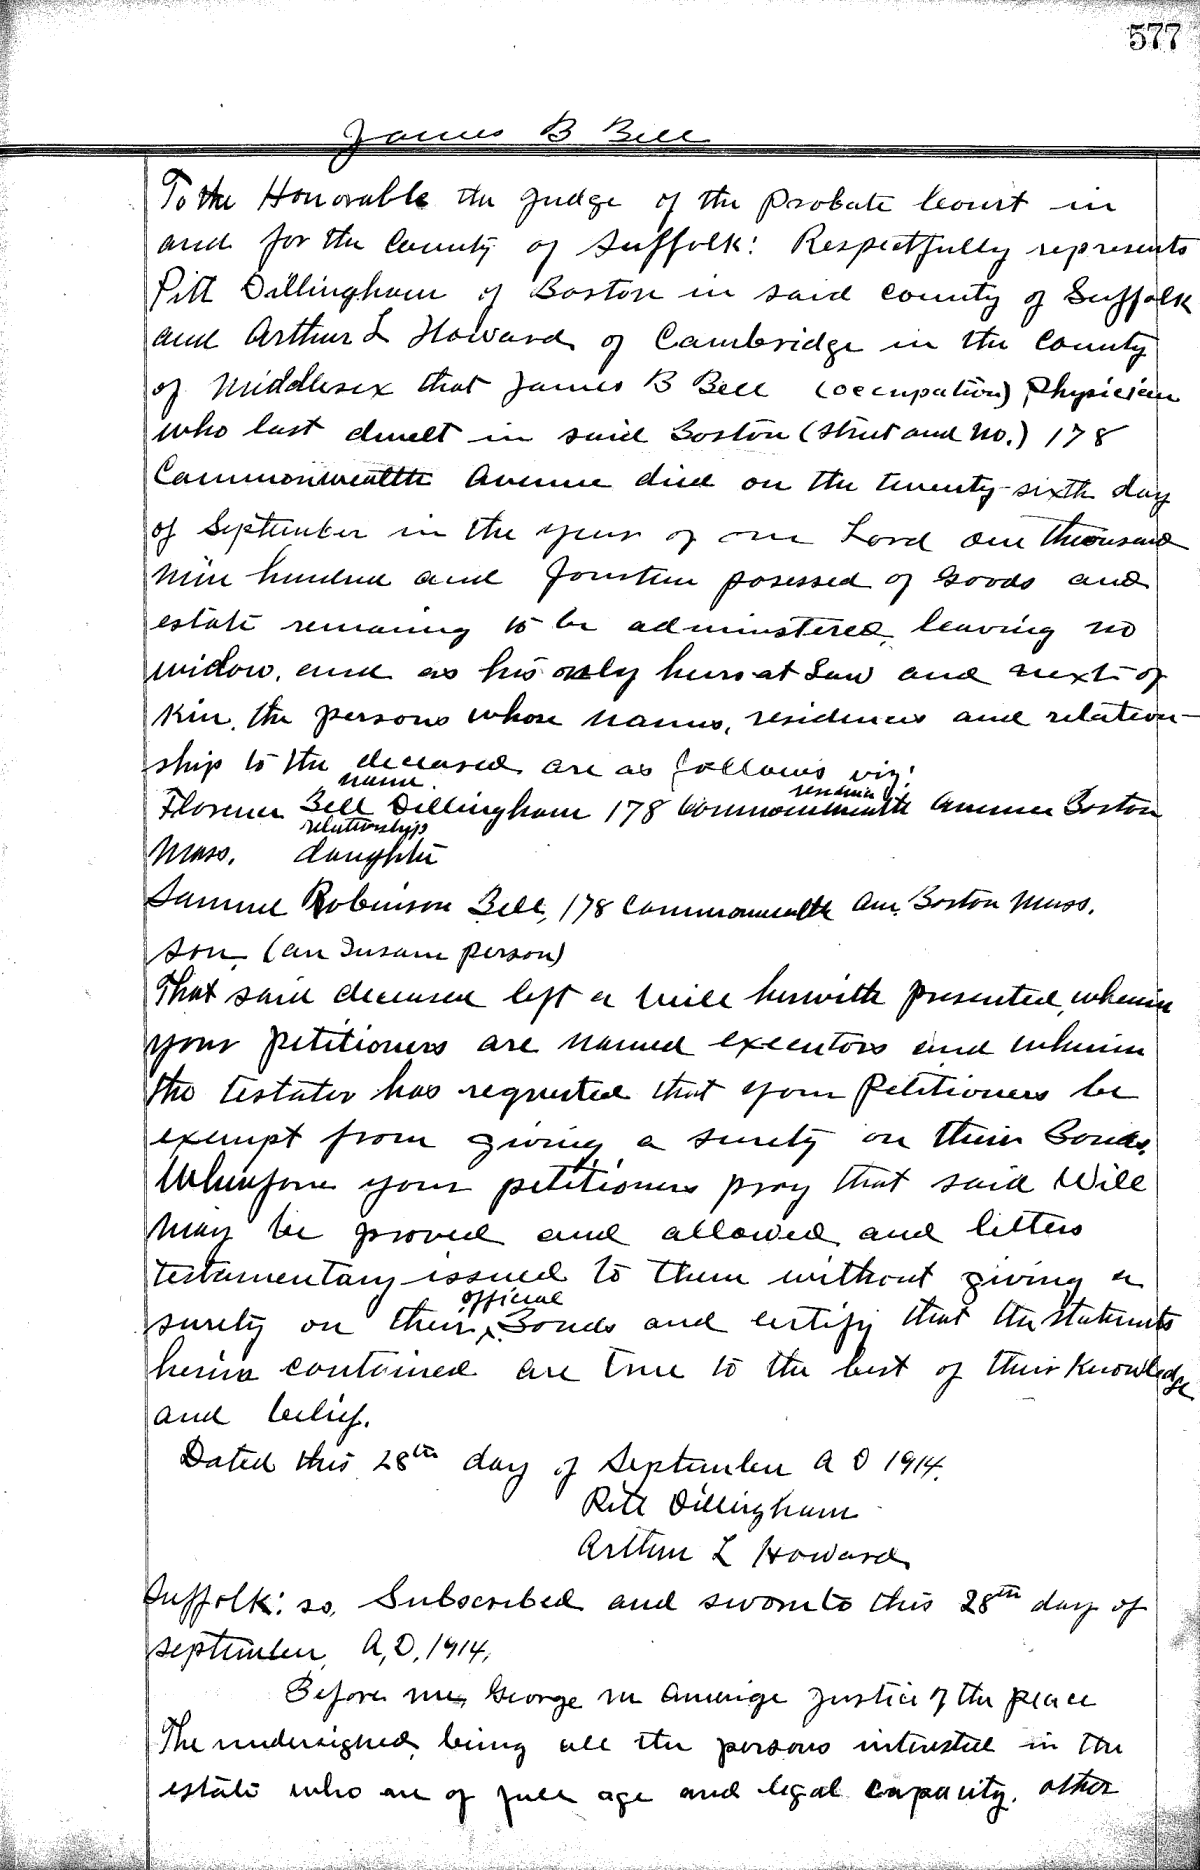 577
James B Bell
To the Honorable the Judge of the Probate Court in
and for the County of Suffolk: Respectfully represents
Pitt Dillingham of Boston in said County of Suffolk
and Arthur L Howard of Cambridge in the County
of Middlesex that James B Bell (occupation) Physician
who last dwelt in said Boston (street and No.) 178
Commonwealth Avenue died on the twenty-sixth day
of September in the year of our Lord one thousand
nine hundred and fourteen posessed of goods and
estate remaning to be adminstered, leaving no
widow, and as his only heirs at Law and next of
kin, the persons whose names, residences and relation-
ship to the deceased are as follows viz:
name residence
Florence Bell Dillingham 178 Commonwealth Avenue Boston
relationship
Mass. daughter
Samuel Robinson Bell, 178 Commonwealth Ave. Boston Mass.
son, (an Insane person)
That said deceased left a will herewith presented, wherein
your petitioners are named executors and wherein
the testator has requested that your Petitioners be
exempt from giving a surety on their Bonds.
Wherefore your petitioners pray that said Will
may be proved and allowed and letters
testamentary issued to them without giving a
official
surety on their Bonds and certify that the statements
herein contained are true to the best of their knowledge
and belief.
Dated this 28th day of September A D 1914.
Pitt Dillingham
Arthur L Howard
Suffolk: ss, Subscribed and sworn to this 28th day of
September, A, D, 1914,
Before me, George M Justice of the peace
The undersigned, being all the persons interested in the
estate who are of full age and legal capacity, other